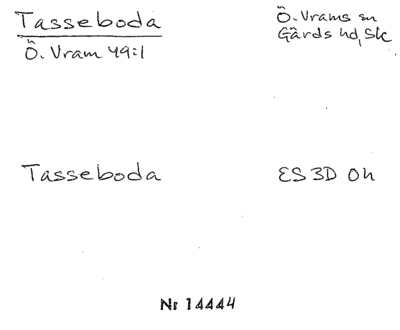 Tasseboda
Ö. Vram 49:1
Ö. Vrams sn
Gärds hd, Sk
Tasseboda
ES 3D 0h
Nr 14444